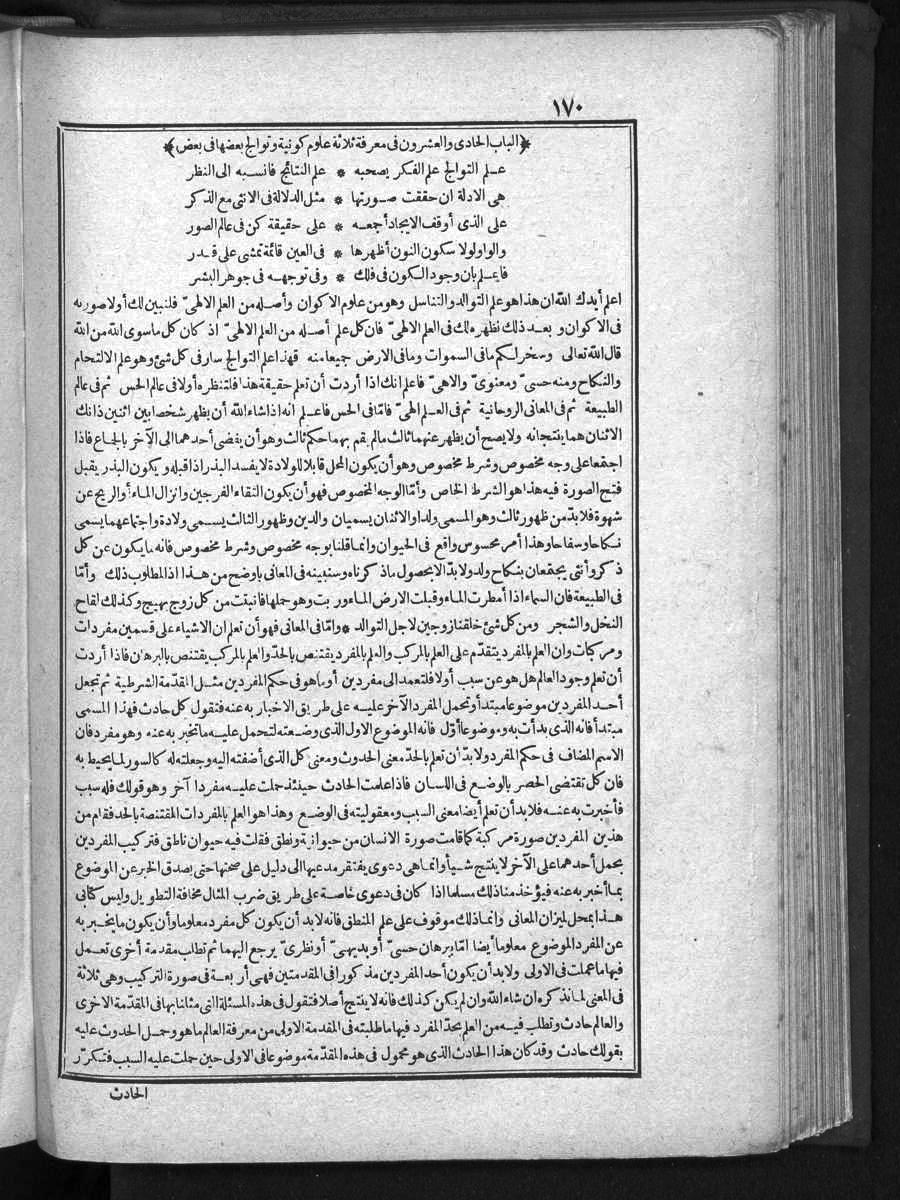 ١٧٠
﴿الباب الحادى والعشرون فى معرفة ثلاثة علوم كونية وتوالج بعضها فى بعض﴾
علم التوالج علم الفكر يصحبه * علم النتائج فانسبه الى النظر
هى الادلة ان حققت صورتها * مثل الدلالة فى الانثى مع الذكر
على الذى أوقف الايجاد أجمعه * على حقيقة كن فى عالم الصور
والواو لولا سكون النون أظهرها * فى العين قائمة تمشى على قدر
فاعلم بان وجود الكون فى فلك * وفى توجهه فى جوهر البشر
اعلم أيدك الله ان هذا هو علم التوالد والتناسل وهو من علوم الاكوان وأصله من العلم الالهىّ فلنبين لك أولا صورته
فى الاكوان و بعد ذلك نظهره لك فى العلم الالهىّ فان كل علم أصله من العلم الالهىّ اذ كان كل ما سوى الله من الله
قال الله تعالى وسخر لكم ما فى السموات وما فى الارض جميعا منه فهذا علم التوالج سار فى كل شئ وهو علم الالتحام
والنكاح ومنه حسىّ ومعنوىّ والاهىّ فاعلم انك اذا أردت أن تعلم حقيقة هذا فلتنظره أولا فى عالم الحس ثم فى عالم
الطبيعة ثم فى المعانى الروحانية ثم فى العلم الالهىّ فامّا فى الحس فاعلم انه اذا شاء الله أن يظهر شخصا بين اثنين ذانك
الاثنان هما ينتجانه ولا يصح أن يظهر عنهما ثالث مالم يقم بهما حكم ثالث وهو أن يفضى أحدهما الى الآخر بالجماع فاذا
اجتمعا على وجه مخصوص وشرط مخصوص وهو أن يكون المحل قابلا للولادة لا يفسد البذر اذا قبله و يكون البذر يقبل
فتح الصورة فيه هذا هو الشرط الخاص وأمّا الوجه المخصوص فهو أن يكون التقاء الفرجين وانزال الماء أو الريح عن
شهوة فلا بدّ من ظهور ثالث وهو المسمى ولدا والاثنان يسميان والدين وظهور الثالث يسمى ولادة واجتماعهما يسمى
نكاحا وسفاحا وهذا أمر محسوس واقع فى الحيوان وانما قلنا بوجه مخصوص وشرط مخصوص فانه ما يكون عن كل
ذكر وأنثى يجتمعان بنكاح ولد ولا بدّ الا بحصول ماذكرناه وسنبينه فى المعانى باوضح من هذا اذ المطلوب ذلك وأمّا
فى الطبيعة فان السماء اذا أمطرت الماء وقبلت الارض الماء وربت وهو حملها فانبتت من كل زوج بهيج وكذلك لقاح
النخل والشجر ومن كل شئ خلقنا زوجين لاجل التوالد * وامّا فى المعانى فهو أن تعلم ان الاشياء على قسمين مفردات
ومركبات وان العلم بالمفرد يتقدّم على العلم بالمركب والعلم بالمفرد يقتنص بالحدّ والعلم بالمركب يقتنص بالبرهان فاذا أردت
أن تعلم وجود العالم هل هو عن سبب أو لا فلتعمد الى مفردين أو ما هو فى حكم المفردين مثل المقدّمة الشرطية ثم تجعل
أحد المفردين موضوعا مبتدأ وتحمل المفرد الآخر عليه على طريق الاخبار به عنه فتقول كل حادث فهذا المسمى
مبتدأ فانه الذى بدأت به وموضوعا أوّل فانه الموضوع الاول الذى وضعته لتحمل عليه ما تخبر به عنه وهو مفرد فان
الاسم المضاف فى حكم المفرد ولا بدّ أن تعلم بالحدّ معنى الحدوث ومعنى كل الذى أضفته اليه وجعلته له كالسور لما يحيط به
فان كل تقتضى الحصر بالوضع فى اللسان فاذا علمت الحادث حينئذ حملت عليه مفردا آخر وهو قولك فله سبب
فأخبرت به عنه فلا بد أن تعلم أيضا معنى السبب ومعقوليته فى الوضع وهذا هو العلم بالمفردات المقتنصة بالحد فقام من
هذين المفردين صورة مركبة كما قامت صورة الانسان من حيوانية ونطق فقلت فيه حيوان ناطق فتركيب المفردين
بحمل أحدهما على الآخر لا ينتج شيأ وانما هى دعوى يفتقر مدعيها الى دليل على صحتها حتى يصدق الخبر عن الموضوع
بما أخبر به عنه فيؤخذ منا ذلك مسلما اذا كان فى دعوى خاصة على طريق ضرب المثال مخافة التطويل وليس كتابى
هذا بمحل لميزان المعانى وانما ذلك موقوف على علم المنطق فانه لا بد أن يكون كل مفرد معلوما وأن يكون ما يخبر به
عن المفرد الموضوع معلوما أيضا امّا ببرهان حسىّ أو بديهىّ أو نظرىّ يرجع اليهما ثم تطلب مقدمة أخرى تعمل
فيها ما عملت فى الاولى ولا بد أن يكون أحد المفردين مذكورا فى المقدمتين فهى أربعة فى صورة التركيب وهى ثلاثة
فى المعنى لما نذكره ان شاء الله وان لم يكن كذلك فانه لا ينتج أصلا فتقول فى هذه المسئلة التى مثلنا بها فى المقدّمة الاخرى
والعالم حادث وتطلب فيه من العلم بحدّ المفرد فيها ما طلبته فى المقدمة الاولى من معرفة العالم ما هو وحمل الحدوث عليه
بقولك حادث وقد كان هذا الحادث الذى هو محمول فى هذه المقدّمة موضوعا فى الاولى حين حملت عليه السبب فتكرّر
الحادث